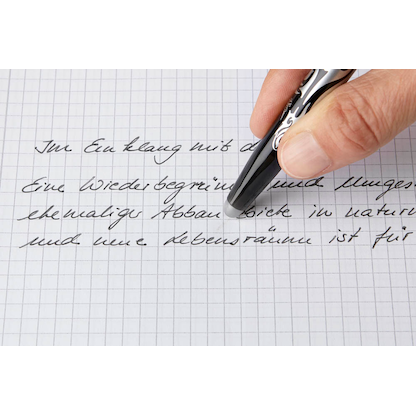 Im Einklang mit d
Eine Wiederbegrün und Umges
ehemaliger Abbau biete in naturn
und neue Lebensräume ist für